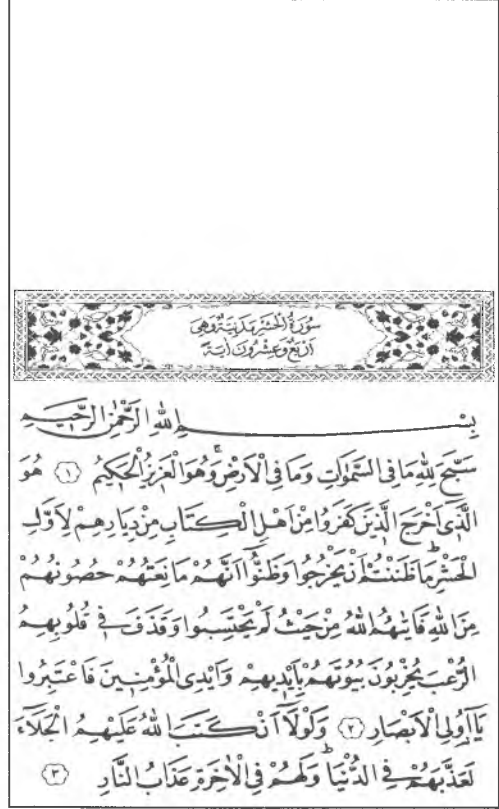 سُورَةُ الْحَشْرِ مَدَنِيَّةٌ وَهِيَ
اَرْبَعٌ وَعِشْرُونَ اٰيَةً
بِسْمِ اللّٰهِ الرَّحْمٰنِ الرَّحِيمِ
سَبَّحَ لِلّٰهِ مَا فِي السَّمٰوَاتِ وَمَا فِي الْاَرْضِۚ وَهُوَ الْعَزِيزُ الْحَكِيمُ ﴿١﴾ هُوَ
الَّذِٓي اَخْرَجَ الَّذِينَ كَفَرُوا مِنْ اَهْلِ الْكِتَابِ مِنْ دِيَارِهِمْ لِاَوَّلِ
الْحَشْرِۜ مَا ظَنَنْتُمْ اَنْ يَخْرُجُوا وَظَنُّٓوا اَنَّهُمْ مَانِعَتُهُمْ حُصُونُهُمْ
مِنَ اللّٰهِ فَاَتٰيهُمُ اللّٰهُ مِنْ حَيْثُ لَمْ يَحْتَسِبُوا وَقَذَفَ فِي قُلُوبِهِمُ
الرُّعْبَ يُخْرِبُونَ بُيُوتَهُمْ بِاَيْدِيهِمْ وَاَيْدِي الْمُؤْمِنِينَ فَاعْتَبِرُوا
يَٓا اُو۬لِي الْاَبْصَارِ ﴿٢﴾ وَلَوْلَٓا اَنْ كَتَبَ اللّٰهُ عَلَيْهِمُ الْجَلَٓاءَ
لَعَذَّبَهُمْ فِي الدُّنْيَاۜ وَلَهُمْ فِي الْاٰخِرَةِ عَذَابُ النَّارِ ﴿٣﴾